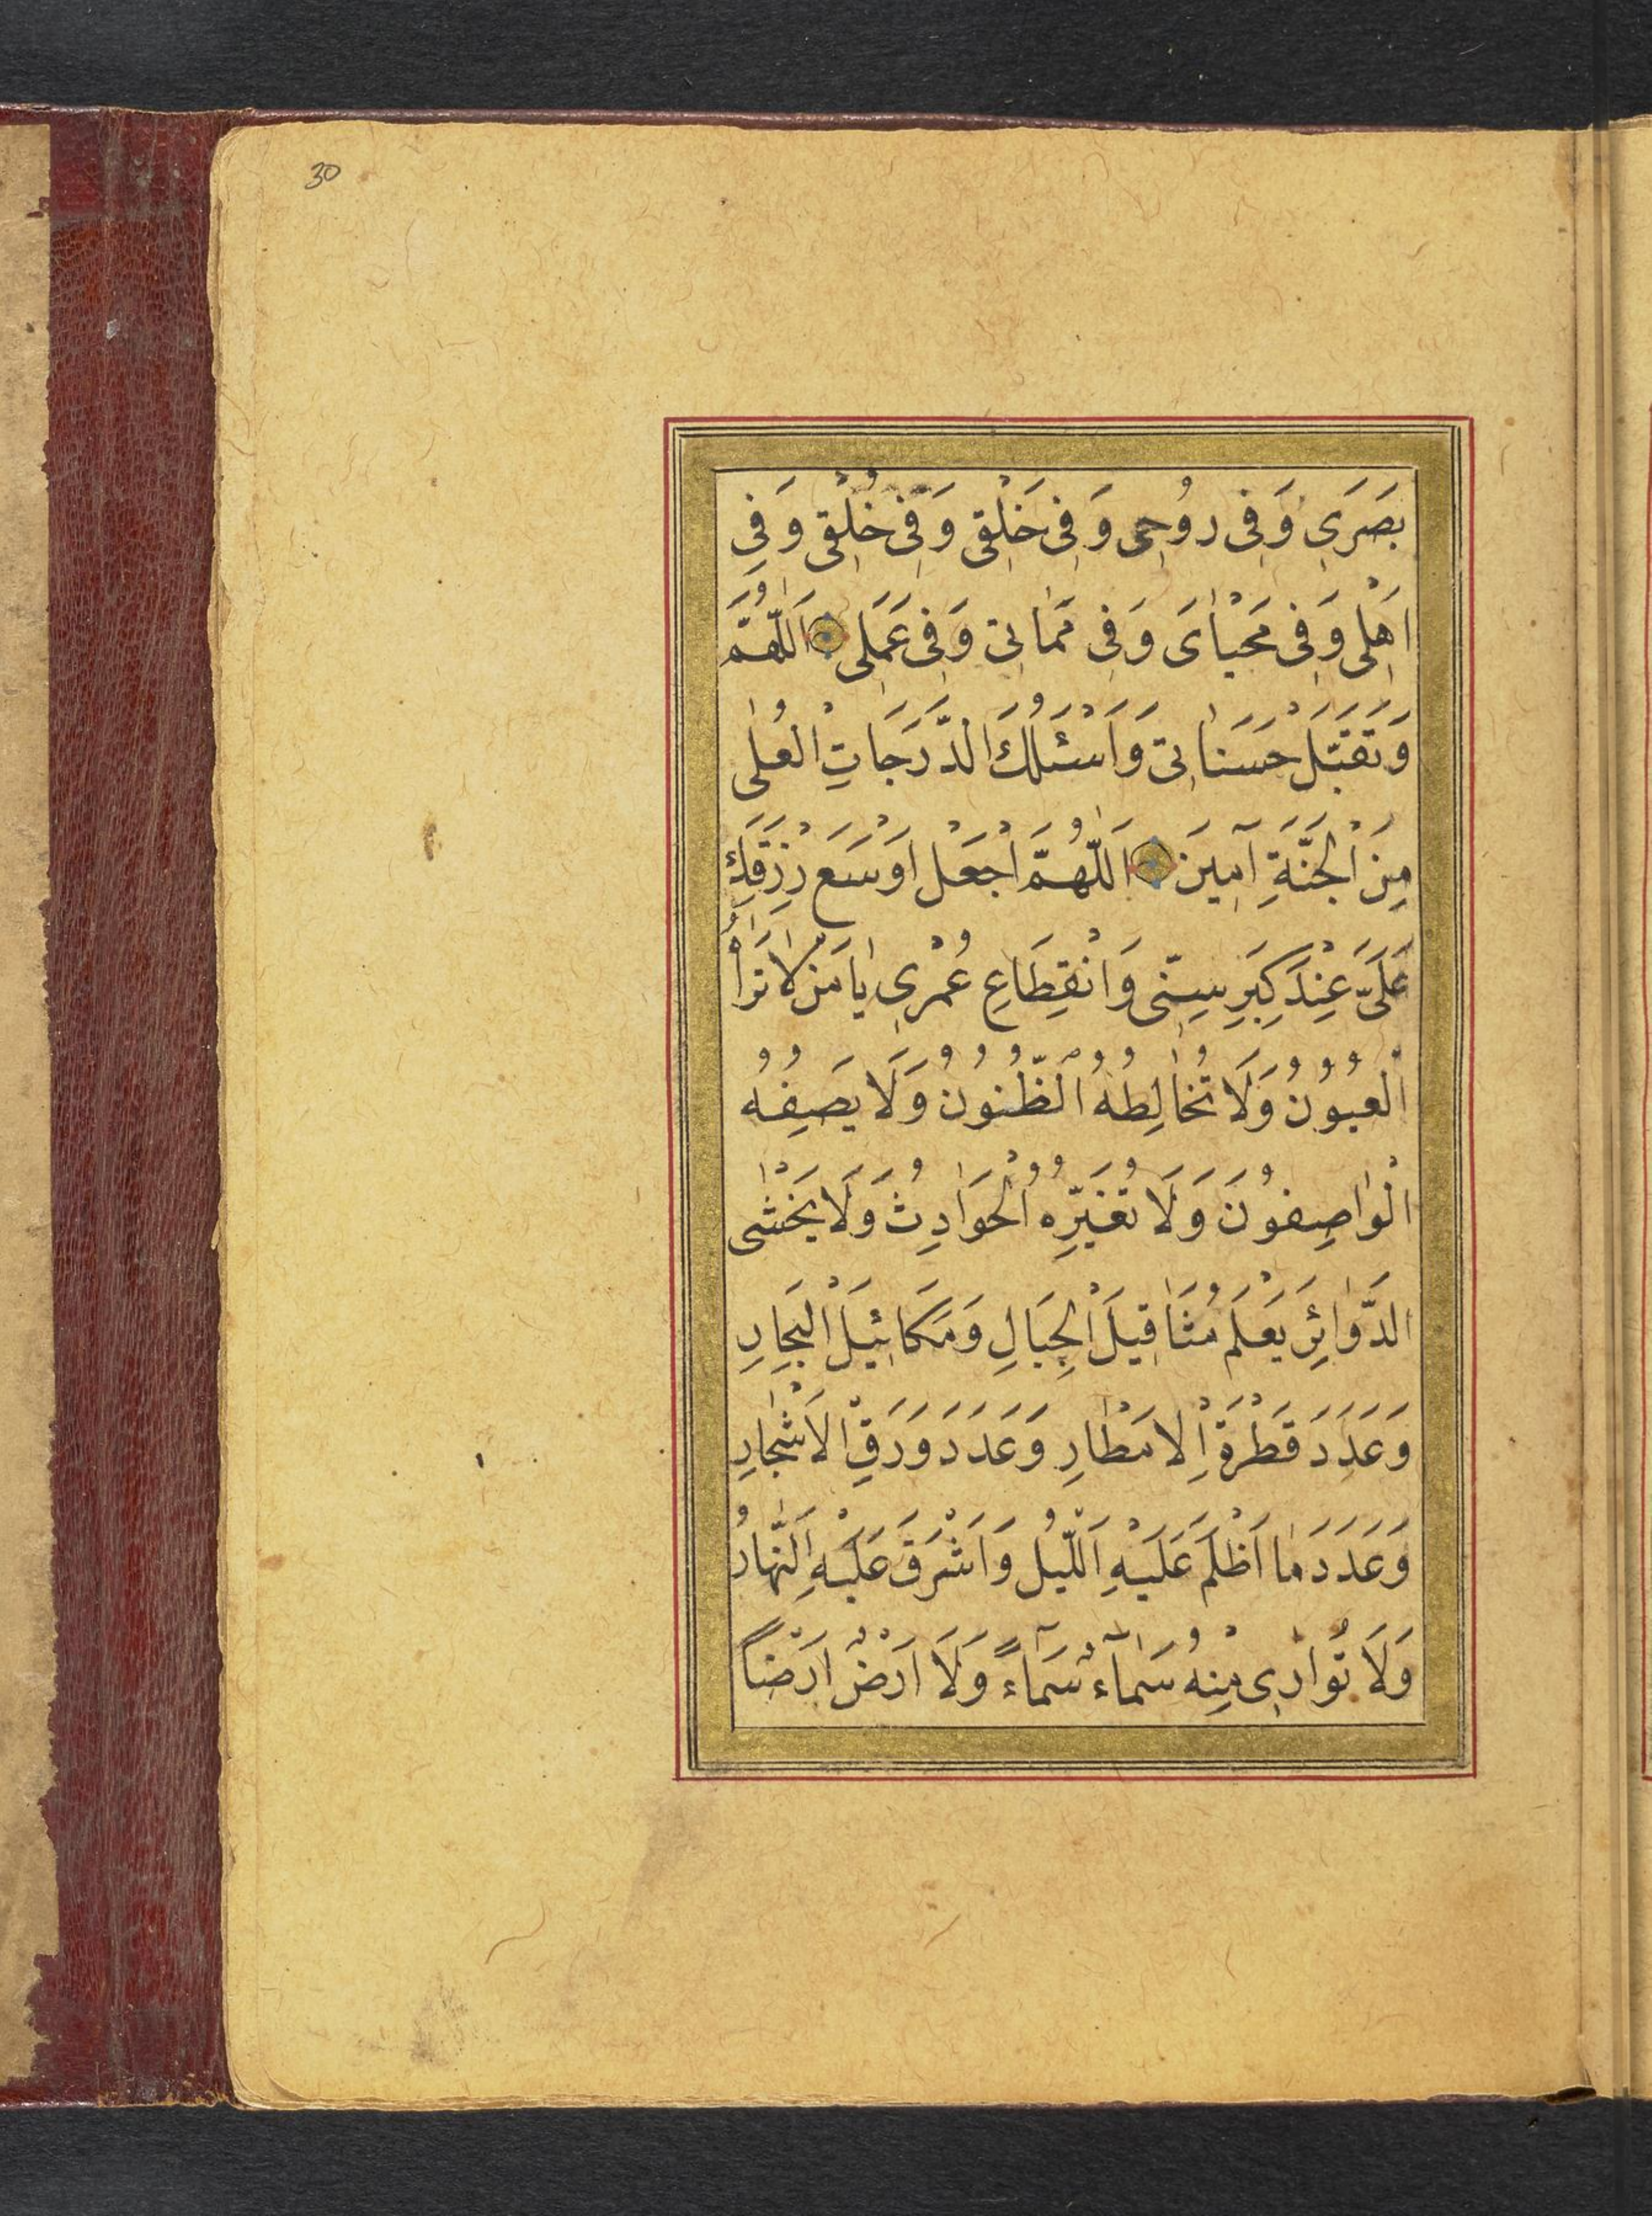 30
بَصَرَىِ وَفِى رُوُحِى وَفِى خَلْقِى وَفِى خُلْقِى وَفِى
اَهْلِى وَفِى مَحْيٰاىَ وَفِى مَمٰاتِى وَفِى عَمَلِى اَللّٰهُمَّ
وَتَقَبَّلْ حَسَنٰاتِى وَاَسْئَلُكَ الدَّرَجَاتِ الْعُلٰى
مِنَ الْجَنَّةِ آمِينَ اَللّٰهُمَّ اَجْعَلْ اَوْسَعَ رِزْقَكِ
عَلَىَّ عِنْدَ كِبَرِ سِنِّى وَانْقِطَاعِ عُمْرِى يٰا مَنْ لٰا تَرٰاُ
الْعُيُوُنُ وَلَا تُخٰالِطُهُ الظُّنُونُ وَلَا يَصِفُهُ
الْوٰاصِفُونَ وَلَا تُغَيِّرُهُ الْحَوَادِثُ وَلَا يَخْشٰى
الدَّوٰائِرَ يَعْلَمُ مَثَاقِيلَ الْجِبَالِ وَمَكَائِيلَ الْبِحَارِ
وَعَدَدَ قَطْرَةِ اْلَامْطٰارِ وَعَدَدَ وَرَقِ الْاَشْجٰارِ
وَعَدَدَ مٰا اَظْلَمَ عَلَيْهِ اَللَّيْلُ وَاَشْرَقَ عَلَيْهِ اَلنَّهٰارُ
وَلَا تُوٰارِى مِنْهُ سَمٰآءُ سَمَآءً وَلَا اَرْضُ اَرْضاً